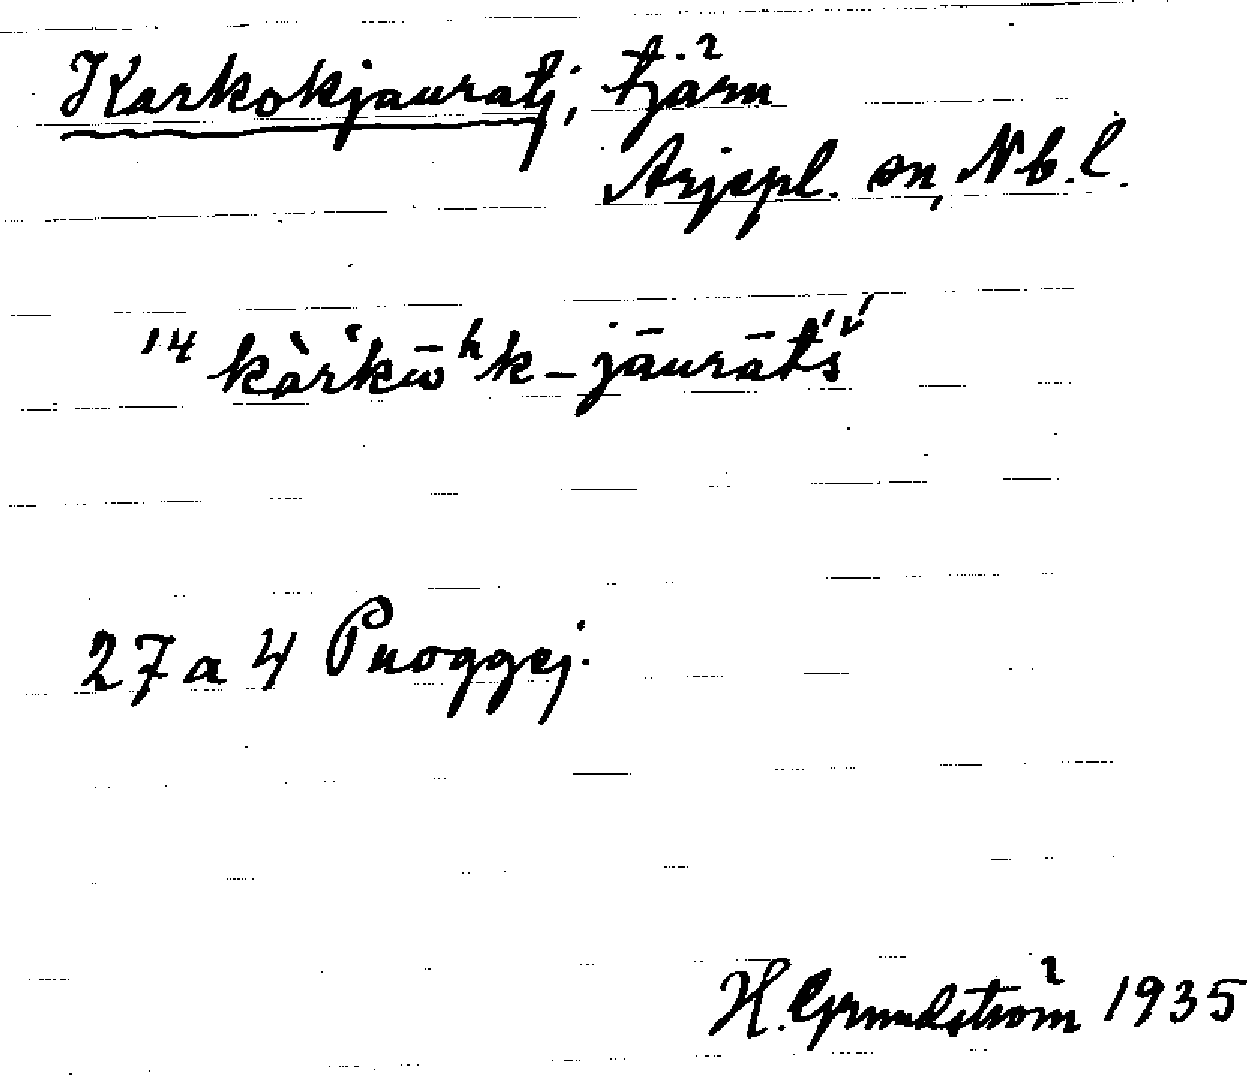 Karkokjauratj; tjärn
Arjepl. sn, Nb.l.
14 kàr̀kō ͪk-jāurāt́š́
27 a 4 Puoggej.
H. Grundström 1935